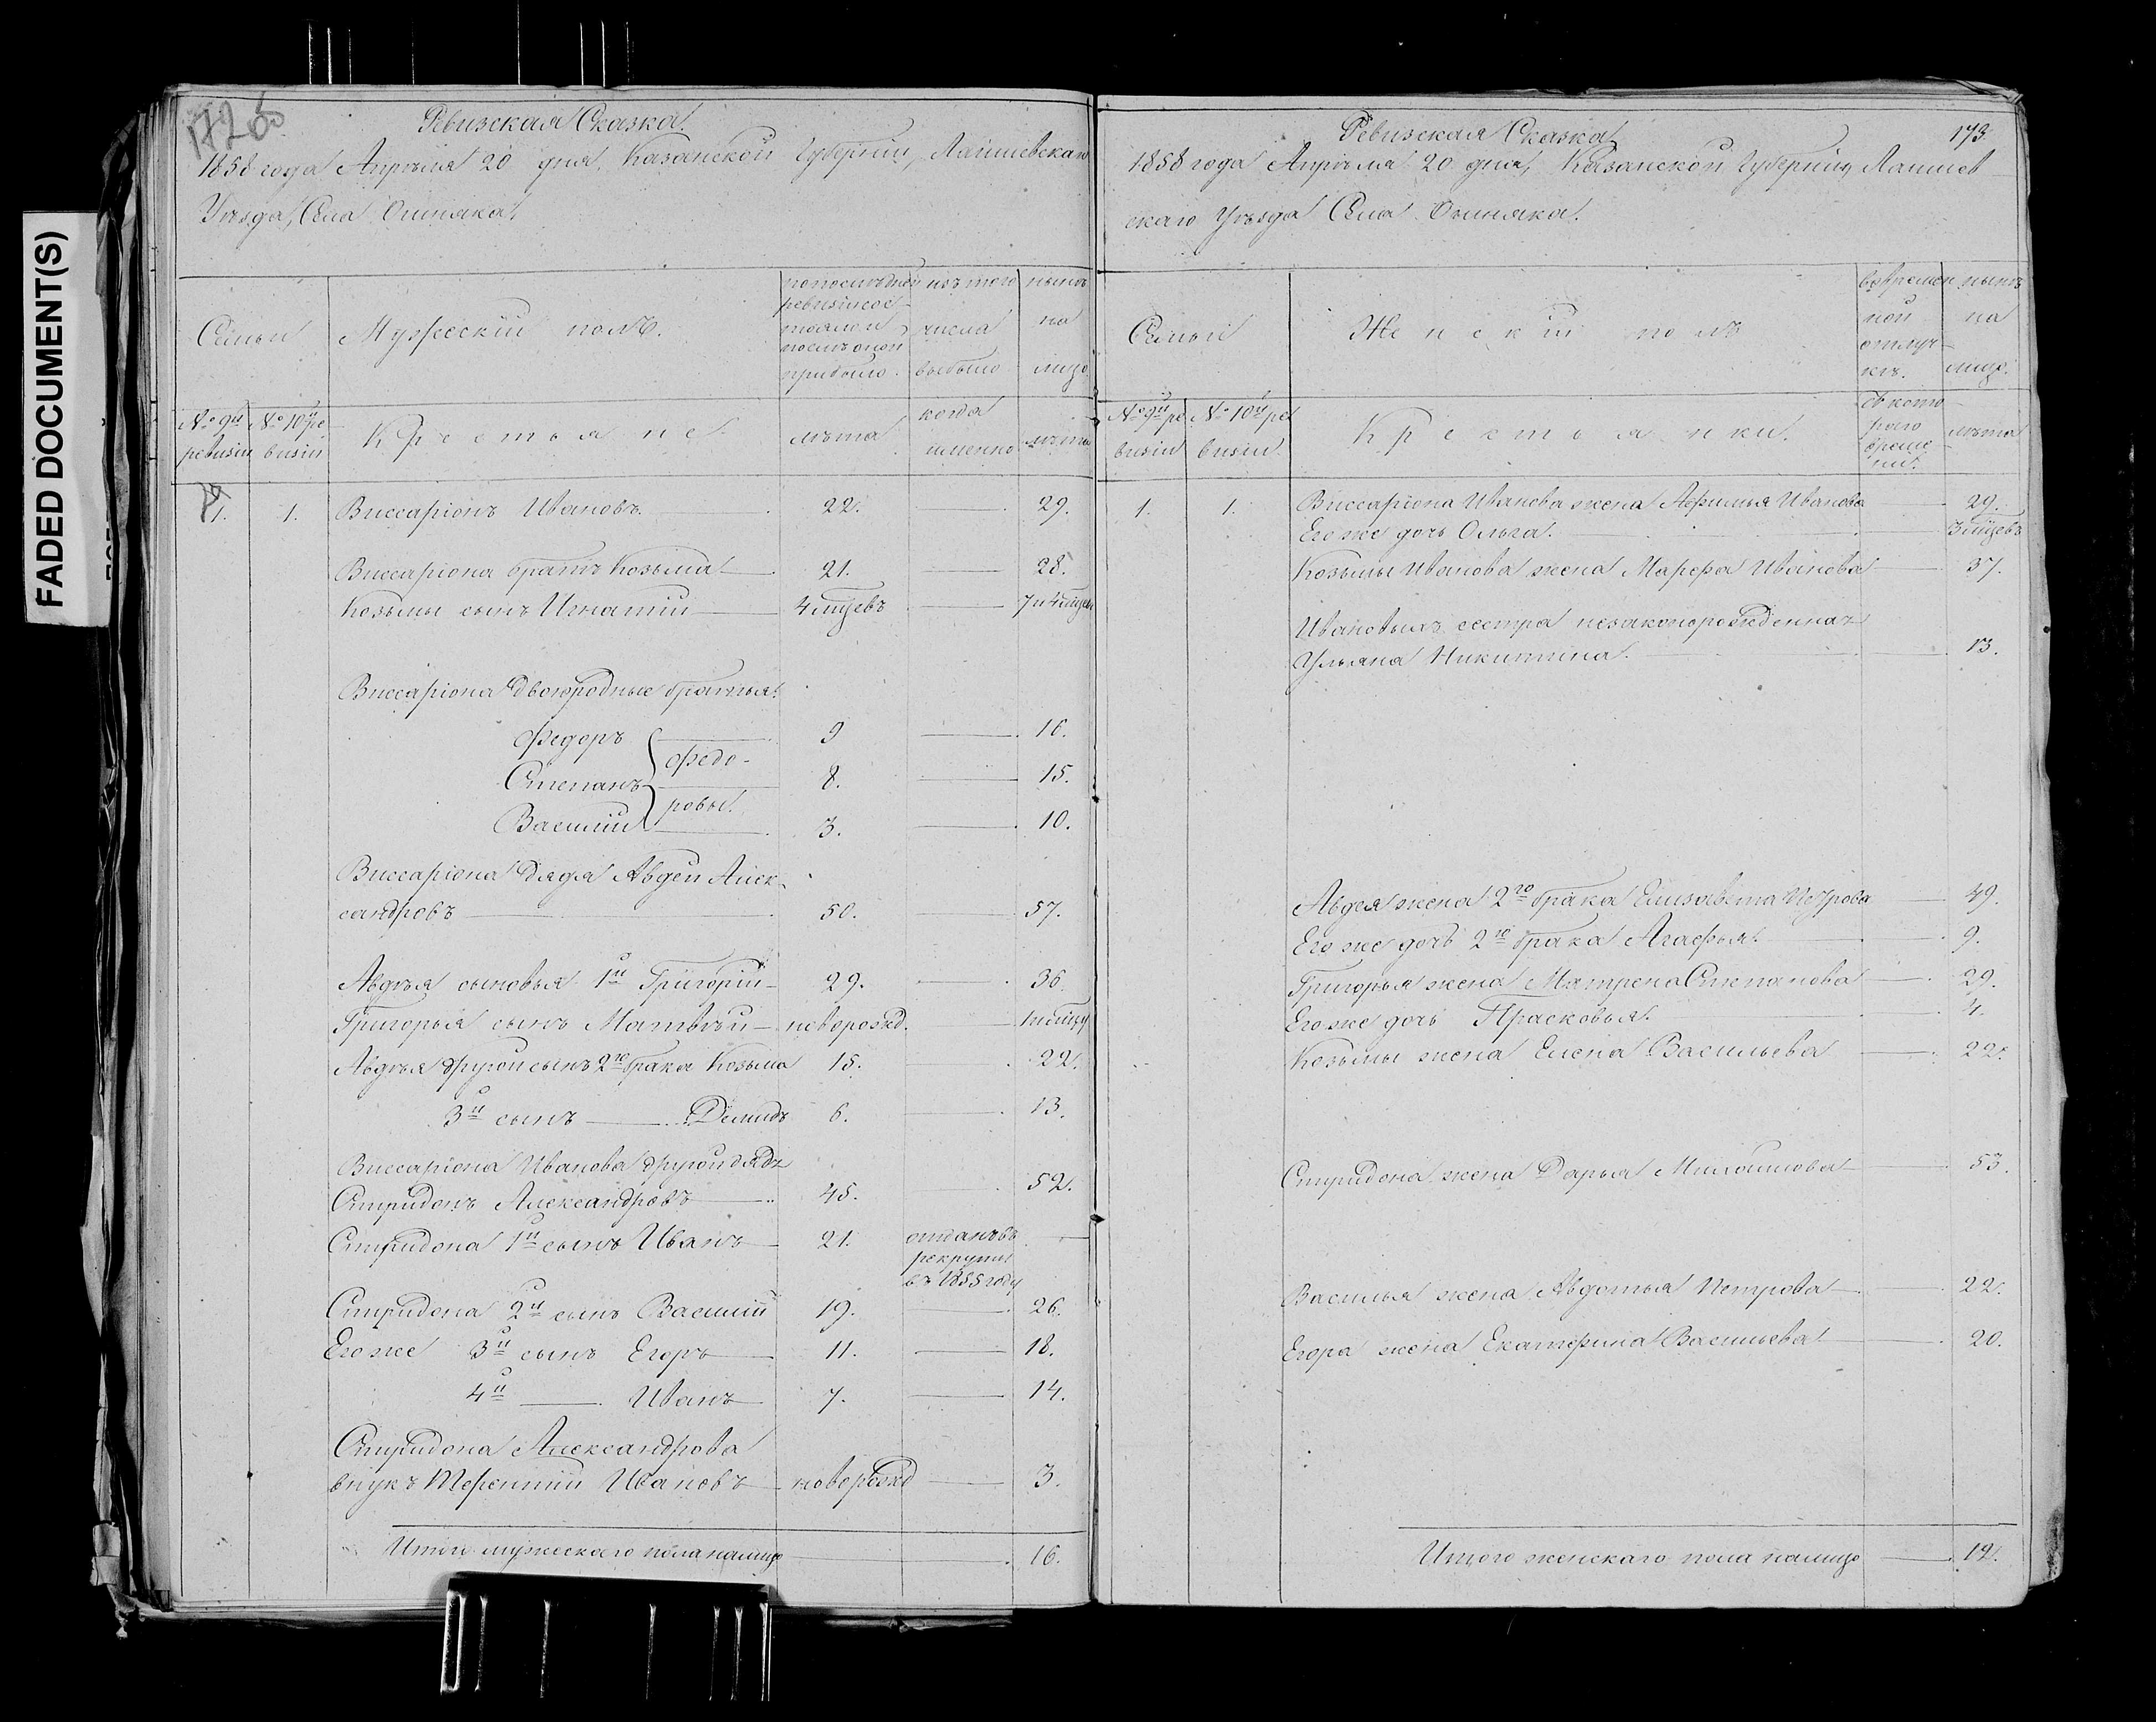 FADED DOCUMENT(S)
Ревизская Сказка.
1858 года Апрѣля 20 дня, Казанской Губерніи, Лаишевскаго
Уѣзда, Села Ошняка.
Семьи
Мужескій полъ.
по послѣдней ревизіи состояло и послѣ оной прибыло.
изъ того числа выбыло
нынѣ на лицо
№ 9й ревизіи
№ 10й ревизіи
Крестьяне.
лѣта
когда именно
лѣта
1. 1. Виссаріонъ Ивановъ 22. 29.
Виссаріона братъ Козьма 21. 28.
Козьмы сынъ Игнатій 4 мцевъ 7 и 4 мцевъ
Виссаріона двоюродные братья:
Федоръ 9 16.
Федо-
Степанъ 8. 15.
ровы.
Василій 3. 10.
Виссаріона дядя Авдей Алек-
сандровъ 50. 57.
Авдѣя сыновья 1й Григорій 29. 36
Григорья сынъ Матвѣй новорожд.
Авдѣя другой сынъ 2го брака Козьма 15. 22.
3й сынъ Демидъ 6. 13.
Виссаріона Иванова другой дядя
Спиридонъ Александровъ 45. 52.
Спиридона 1й сынъ Иванъ 21. отданъ въ рекруты въ 1855 году
Спиридона 2й сынъ Василій 19. 26.
Его же 3й сынъ Егоръ 11. 18.
4й Иванъ 7. 14.
Спиридона Александрова
внукъ Терентій Ивановъ новорожд 3.
Итого мужескаго пола налицо 16.
Ревизская Сказка 173
1858 года Апрѣля 20 дня, Казанской Губерніи, Лаишев
скаго Уѣзда Села Ошняка.
Семьи
Женскій полъ
во временной отлучкѣ.
нынѣ на лицо.
№ 9й ревизіи
№ 10й ревизіи.
Крестьянки.
съ котораго времени.
лѣта
1. 1. Виссаріона Иванова жена Афимья Иванова 29.
Его же дочь Ольга. 3 мцевъ
Козьмы Иванова жена Марфа Иванова 37.
Ивановыхъ сестра незаконорожденная
Ульяна Никитина. 13.
Авдея жена 2го брака Елизавета Петрова 49.
Его же дочь 2го брака Агафья. 9.
Григорья жена Матрена Степанова 29.
Его же дочь Прасковья. 4.
Козьмы жена Елена Васильева 22.
Спиридона жена Дарья Михайлова 53.
Василья жена Авдотья Петрова 22.
Егора жена Екатерина Васильева 20.
Итого женскаго пола налицо 12.